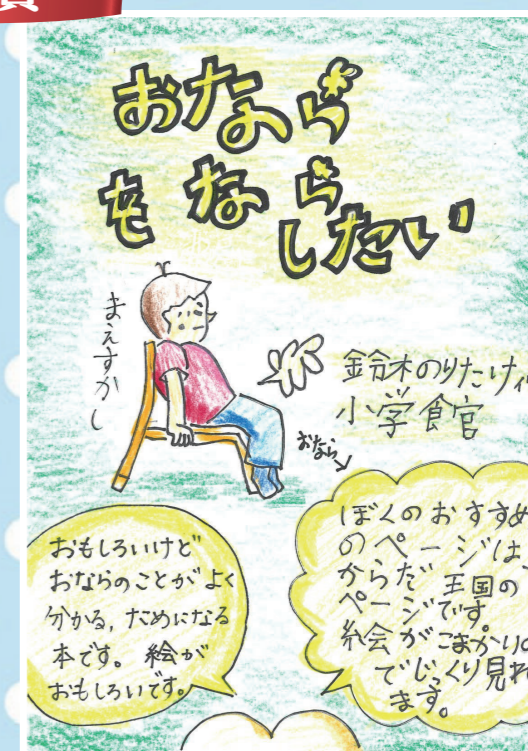 賞
おなら
をならしたい
まえすかし
鈴木のりたけ
小学館
おなら
おもしろいけど
おならのことがよく
分かる,ためになる
本です。絵が
おもしろいです。
ぼくのおすすめ
のページは、
からだ王国の
ページです。
絵がこまかいの
でじっくり見れ
ます。